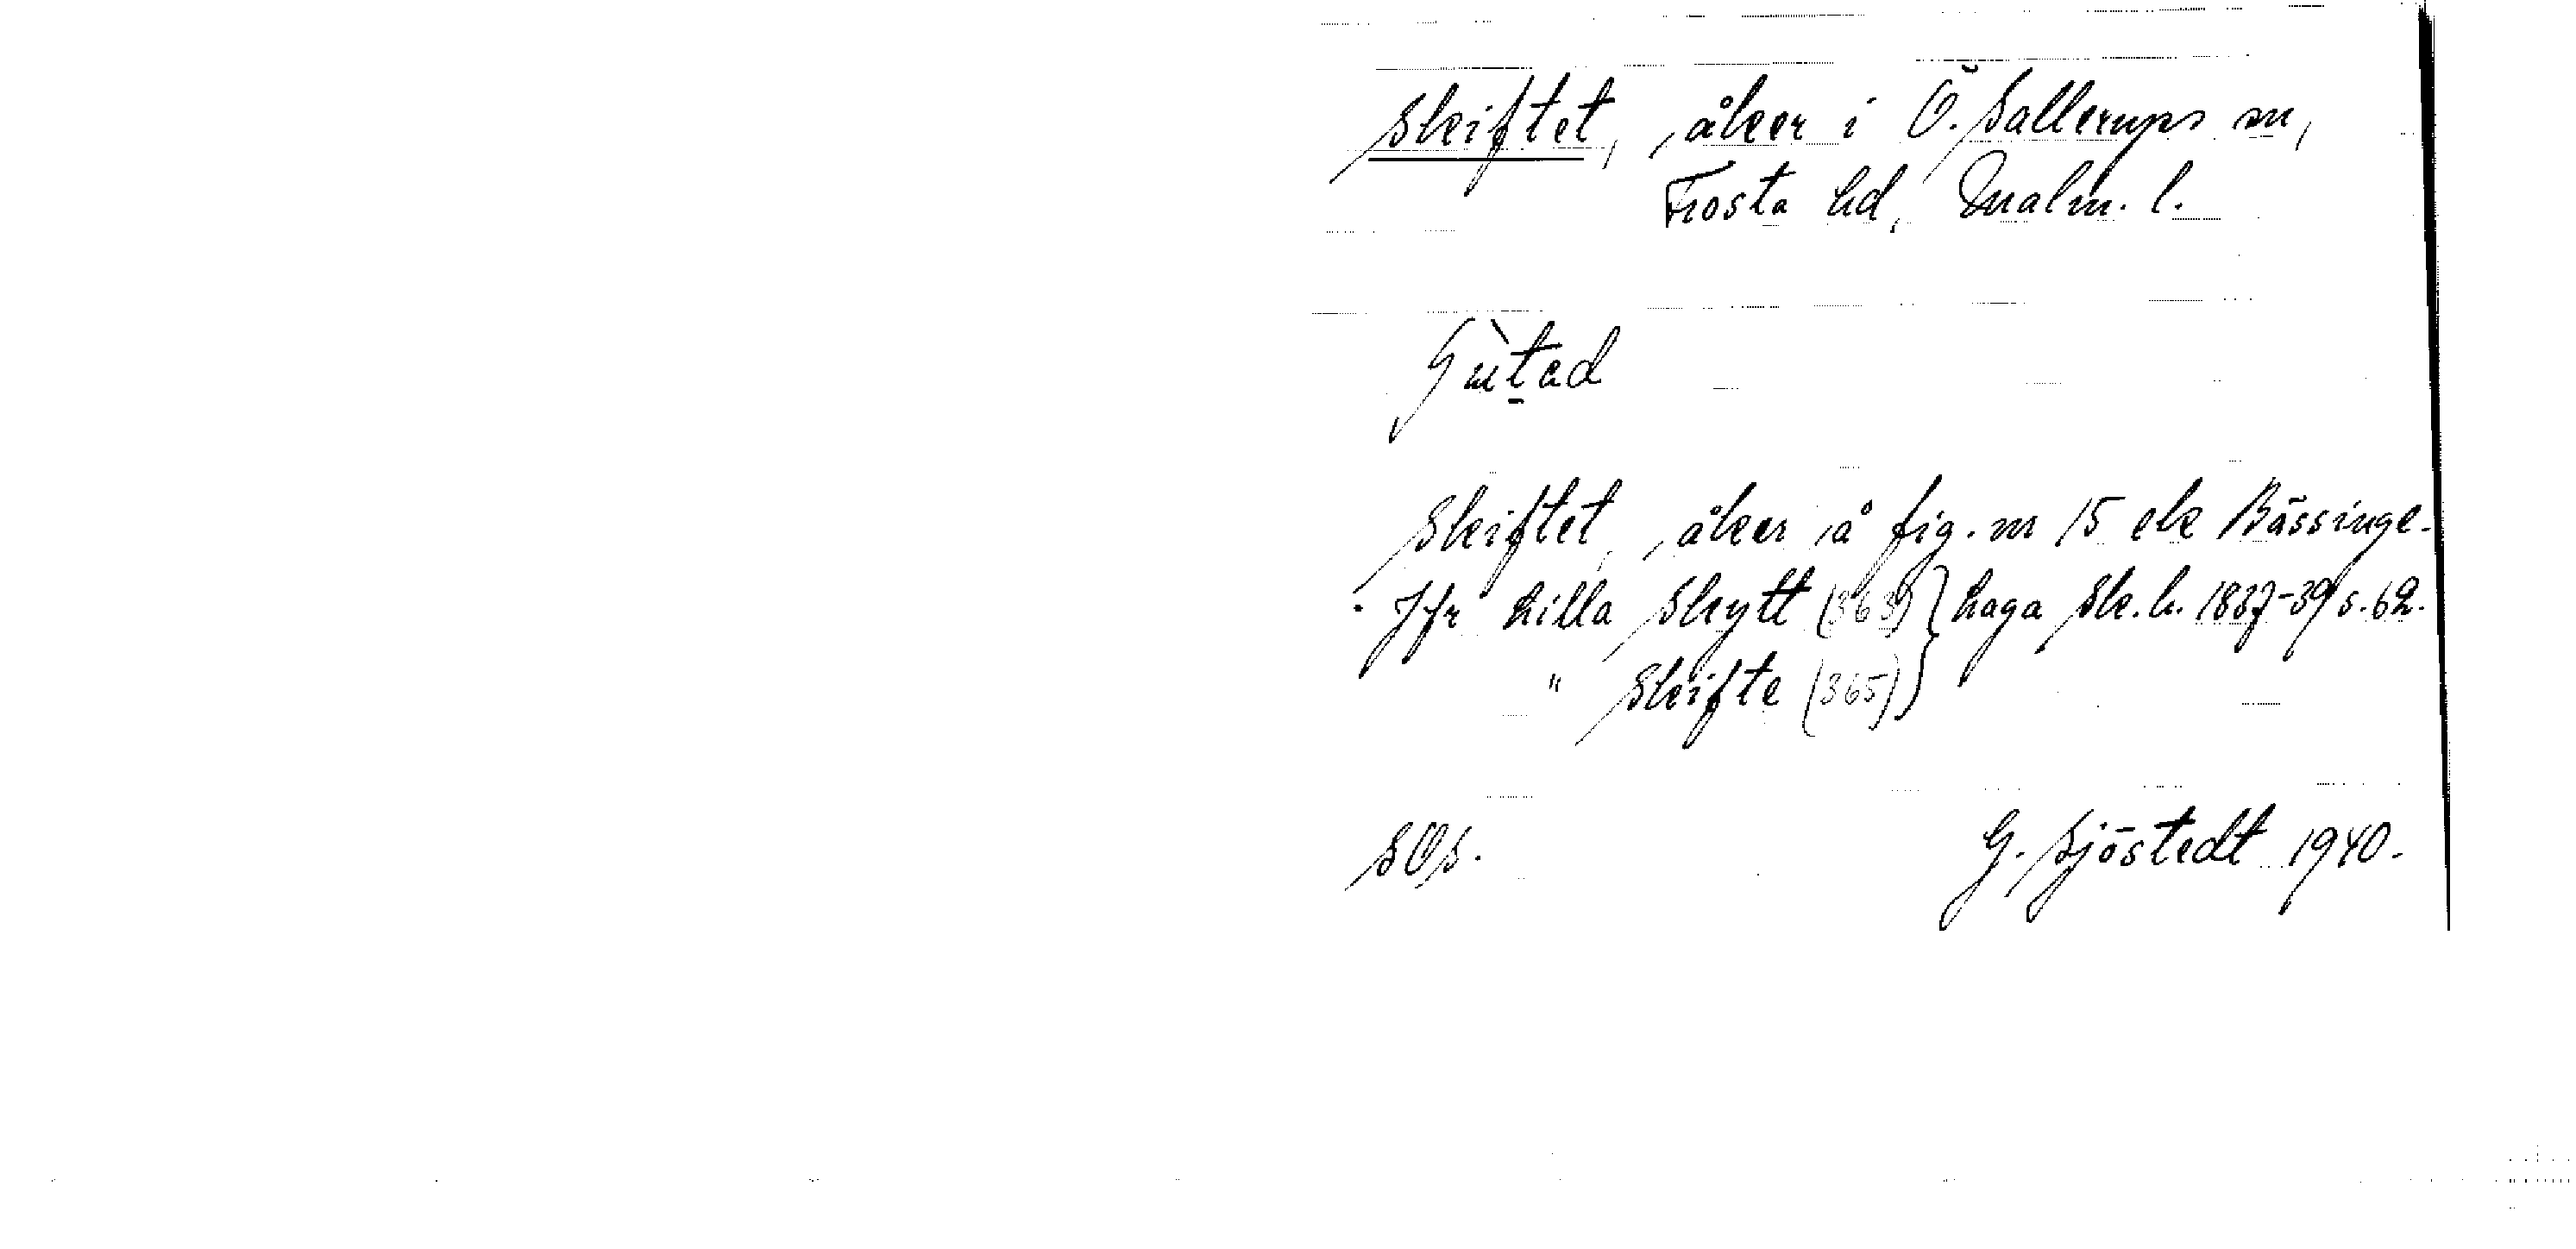 Skiftet, åker i Ö. Sallerups sn,
Frosta hd, Malm. l.
Skiftet, åker å fig. nr 15 ek Bässinge.
Jfr Lilla Skytt (363) } haga Sk. h. 1837-39 s. 62.
" Skifte (365) }
SOS. G. Sjöstedt 1940.